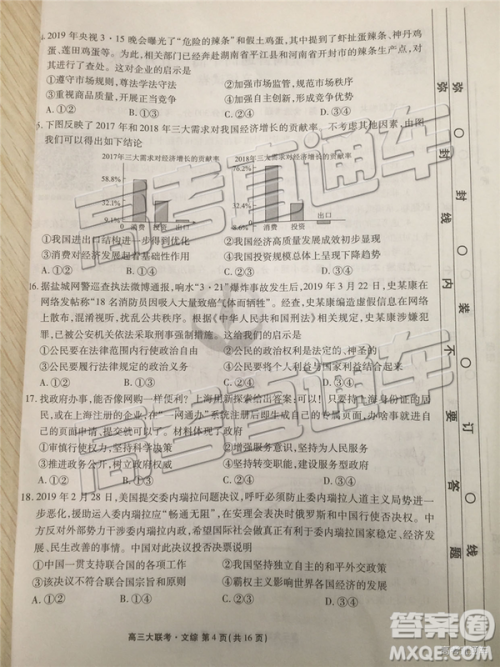 2019年央视3·15晚会曝光了“危险的辣条”和假土鸡蛋，其中提到了虾扯蛋辣条、神丹鸡
蛋、莲田鸡蛋等。相关部门已赴湖南省平江县和河南省开封市的辣条生产点，对
其进行了查处。对企业的启示是
①遵守市场规则，尊法学法守法 ②加强市场监管，规范市场秩序
③重视商品质量，开展正当竞争 ④实施创新驱动，形成竞争优势
A. ①② B. ①③ C. ②④ D. ③④
5. 下图反映了2017年和2018年三大需求对我国经济增长的贡献率。不考虑其他因素，由图
我们可以得出如下结论
2017年三大需求对经济增长的贡献率 2018年三大需求对经济增长的贡献率
58.8%
32.1%
9.1%
消费 投资 出口
76.2%
32.4%
消费 投资 出口
①我国进出口结构进一步得到优化 ②我国经济发展方式
③消费对经济发展起着基础性作用 ④我国投资规模
A. ①② B. ①③ C. ②④ D. ③④
16. 据盐城网警巡查执法微博通报，响水“3·21”爆炸事故发生后，2019年3月22日，史某康在
网络发帖称“18名消防员因吸入大量致癌气体而牺牲”。史某康编造虚假信息在网络
上散布，混淆视听，扰乱公共秩序。根据《中华人民共和国刑法》相关规定，史某康涉嫌犯
罪，已被公安机关依法采取刑事强制措施。这给我们的启示是
①公民要在法律范围内行使政治自由 ②公民的政治权利是法定的、神圣的
③公民要坚持权利与义务相统一 ④公民要把个人利益与国家利益相结合
A. ①② B. ①③ C. ②④ D. ③④
17. 找政府办事，能否像网购一样便利？上海用新探索给出答案：可以。只要持上海身份证的居
民，或在上海注册的企业，在“一网通办”系统注册后即可生成自己的专属页面，进入自己的
页面申请，提交一切需求。上述材料体现了政府
①审慎行使权力，坚持科学决策 ②增强服务意识，坚持为人民服务
③推进政务公开，树立政府权威 ④坚持转变职能，建设服务型政府
A. ①② B. ①③ C. ②④ D. ③④
18. 2019年2月28日，美国提交委内瑞拉问题决议，呼吁必须防止委内瑞拉人道主义局势进一
步恶化，援助运入委内瑞拉应“畅通无阻”，其草案在表决时因俄罗斯和中国投反对票未通过。中
方反对外部势力干涉委内瑞拉事务，希望国际社会做真正有利于委内瑞拉国家稳定、经济
发展和民生改善的事情。中国对此决议投否决票说明
①中国一贯支持联合国的各项工作 ②国家利益决定国际关系
③该决议不符合联合国宗旨和原则 ④霸权主义严重影响了委内瑞拉民生
A. ①② B. ①③ C. ②④ D. ③④
高三大联考·文综 第4页(共16页)
弥 封 线 内 不 要 答 题
弥 封 装 订 线
高考直通车
高考直通车